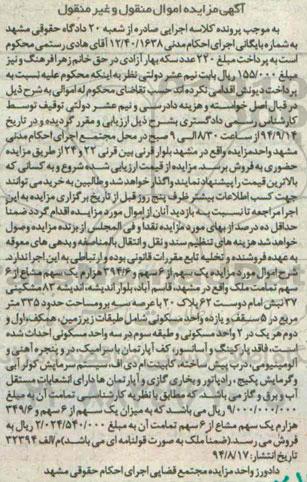 آگهی مزایده اموال منقول و غیر منقول
به موجب پرونده کلاسه اجرایی صادره از شعبه ۲۰ دادگاه حقوقی مشهد
به شماره بایگانی اجرای احکام مدنی ۱۲/۴۰/۱۶۳۸ آقای هادی رستمی محکوم
است به پرداخت مبلغ ۲۴۰ عدد سکه بهار آزادی در حق خانم زهرا فرهنگ و نیز
مبلغ ۱۵۵/۰۰۰ ریال بابت نیم عشر دولتی نظر به اینکه محکوم علیه نسبت به
پرداخت دیونش اقدامی نکرده اند حسب تقاضای محکوم له اموالی به شرح ذیل
در قبال اصل خواسته و هزینه دادرسی و نیم عشر دولتی توقیف توسط
کارشناس رسمی دادگستری بشرح ذیل ارزیابی و مقرر گردیده و در تاریخ
۹۴/۹/۱۴ از ساعت ۸/۳۰ الی ۹ صبح در محل مجتمع اجرای احکام مدنی
مشهد واحد مزایده واقع در مشهد بلوار قرنی بین قرنی ۲۲ و ۲۴ از طریق مزایده
حضوری به فروش برسد. مزایده از قیمت ارزیابی شده شروع و به کسانی که
بالاترین قیمت را پیشنهاد نمایند واگذار خواهد شد و طالبین به خرید می توانند
جهت کسب اطلاعات بیشتر ظرف پنج روز قبل از تاریخ برگزاری مزایده به این
اجرا مراجعه تا نسبت به بازدید آنان از اموال مورد مزایده اقدام گردد ضمناً
حداقل ده درصد از بهای مورد مزایده نقداً و فی المجلس از برنده مزایده وصول
خواهد شد هزینه های تنظیم سند و نقل و انتقال بالمناصفه و بدهی های معوقه
به عهده فروشنده و تخلیه تابع مقررات قانونی بوده و ارتباطی به این اجرا ندارد.
شرح اموال مورد مزایده یک سهم از ۶ سهم و ۳۹۴/۶ هزارم یک سهم مشاع از ۶
سهم تمامت ملک واقع در مشهد، قاسم آباد، بلوار اندیشه، اندیشه ۸۳ مشکینی
۳۷ نبش امام دوست ۶۲ پلاک ۲۰ با عرصه به برو مساحت حدود ۳۳۵ متر
مربع در ۵ سقف و یازده واحد مسکونی شامل طبقات زیرزمین، همکف، اول و
دوم هر یک در ۲ واحد مسکونی و طبقه سوم در سه واحد مسکونی احداث شده
است، فاقد پارکینگ و آسانسور، کف آپارتمان با سرامیک، در و پنجره آهنی و
آلومینیومی، درب پیش ساخته، کابینت ام دی اف، سیستم سرمایش کولر آبی
و گرمایش پکیج، رادیاتور و بخاری گازی و آپارتمان ها دارای انشعابات مستقل
آب و برق و گاز می باشد. که مطابق با نظریه کارشناسی تمامت آن به مبلغ
۹/۰۰۰/۰۰۰/۰۰۰ ریال می باشد که به میزان یک سهم از ۶ سهم و ۳۴۹/۶
هزارم یک سهم مشاع از ۶ سهم تمامت آن به مبلغ ۲/۰۲۴/۵۴۰/۰۰۰ ریال به
فروش می رسد (ضمناً ملک به صورت قولنامه ای می باشد) م/الف ۳۲۳۹۴
تاریخ انتشار: ۹۴/۸/۱۷
دادورز واحد مزایده مجتمع قضایی اجرای احکام حقوقی مشهد